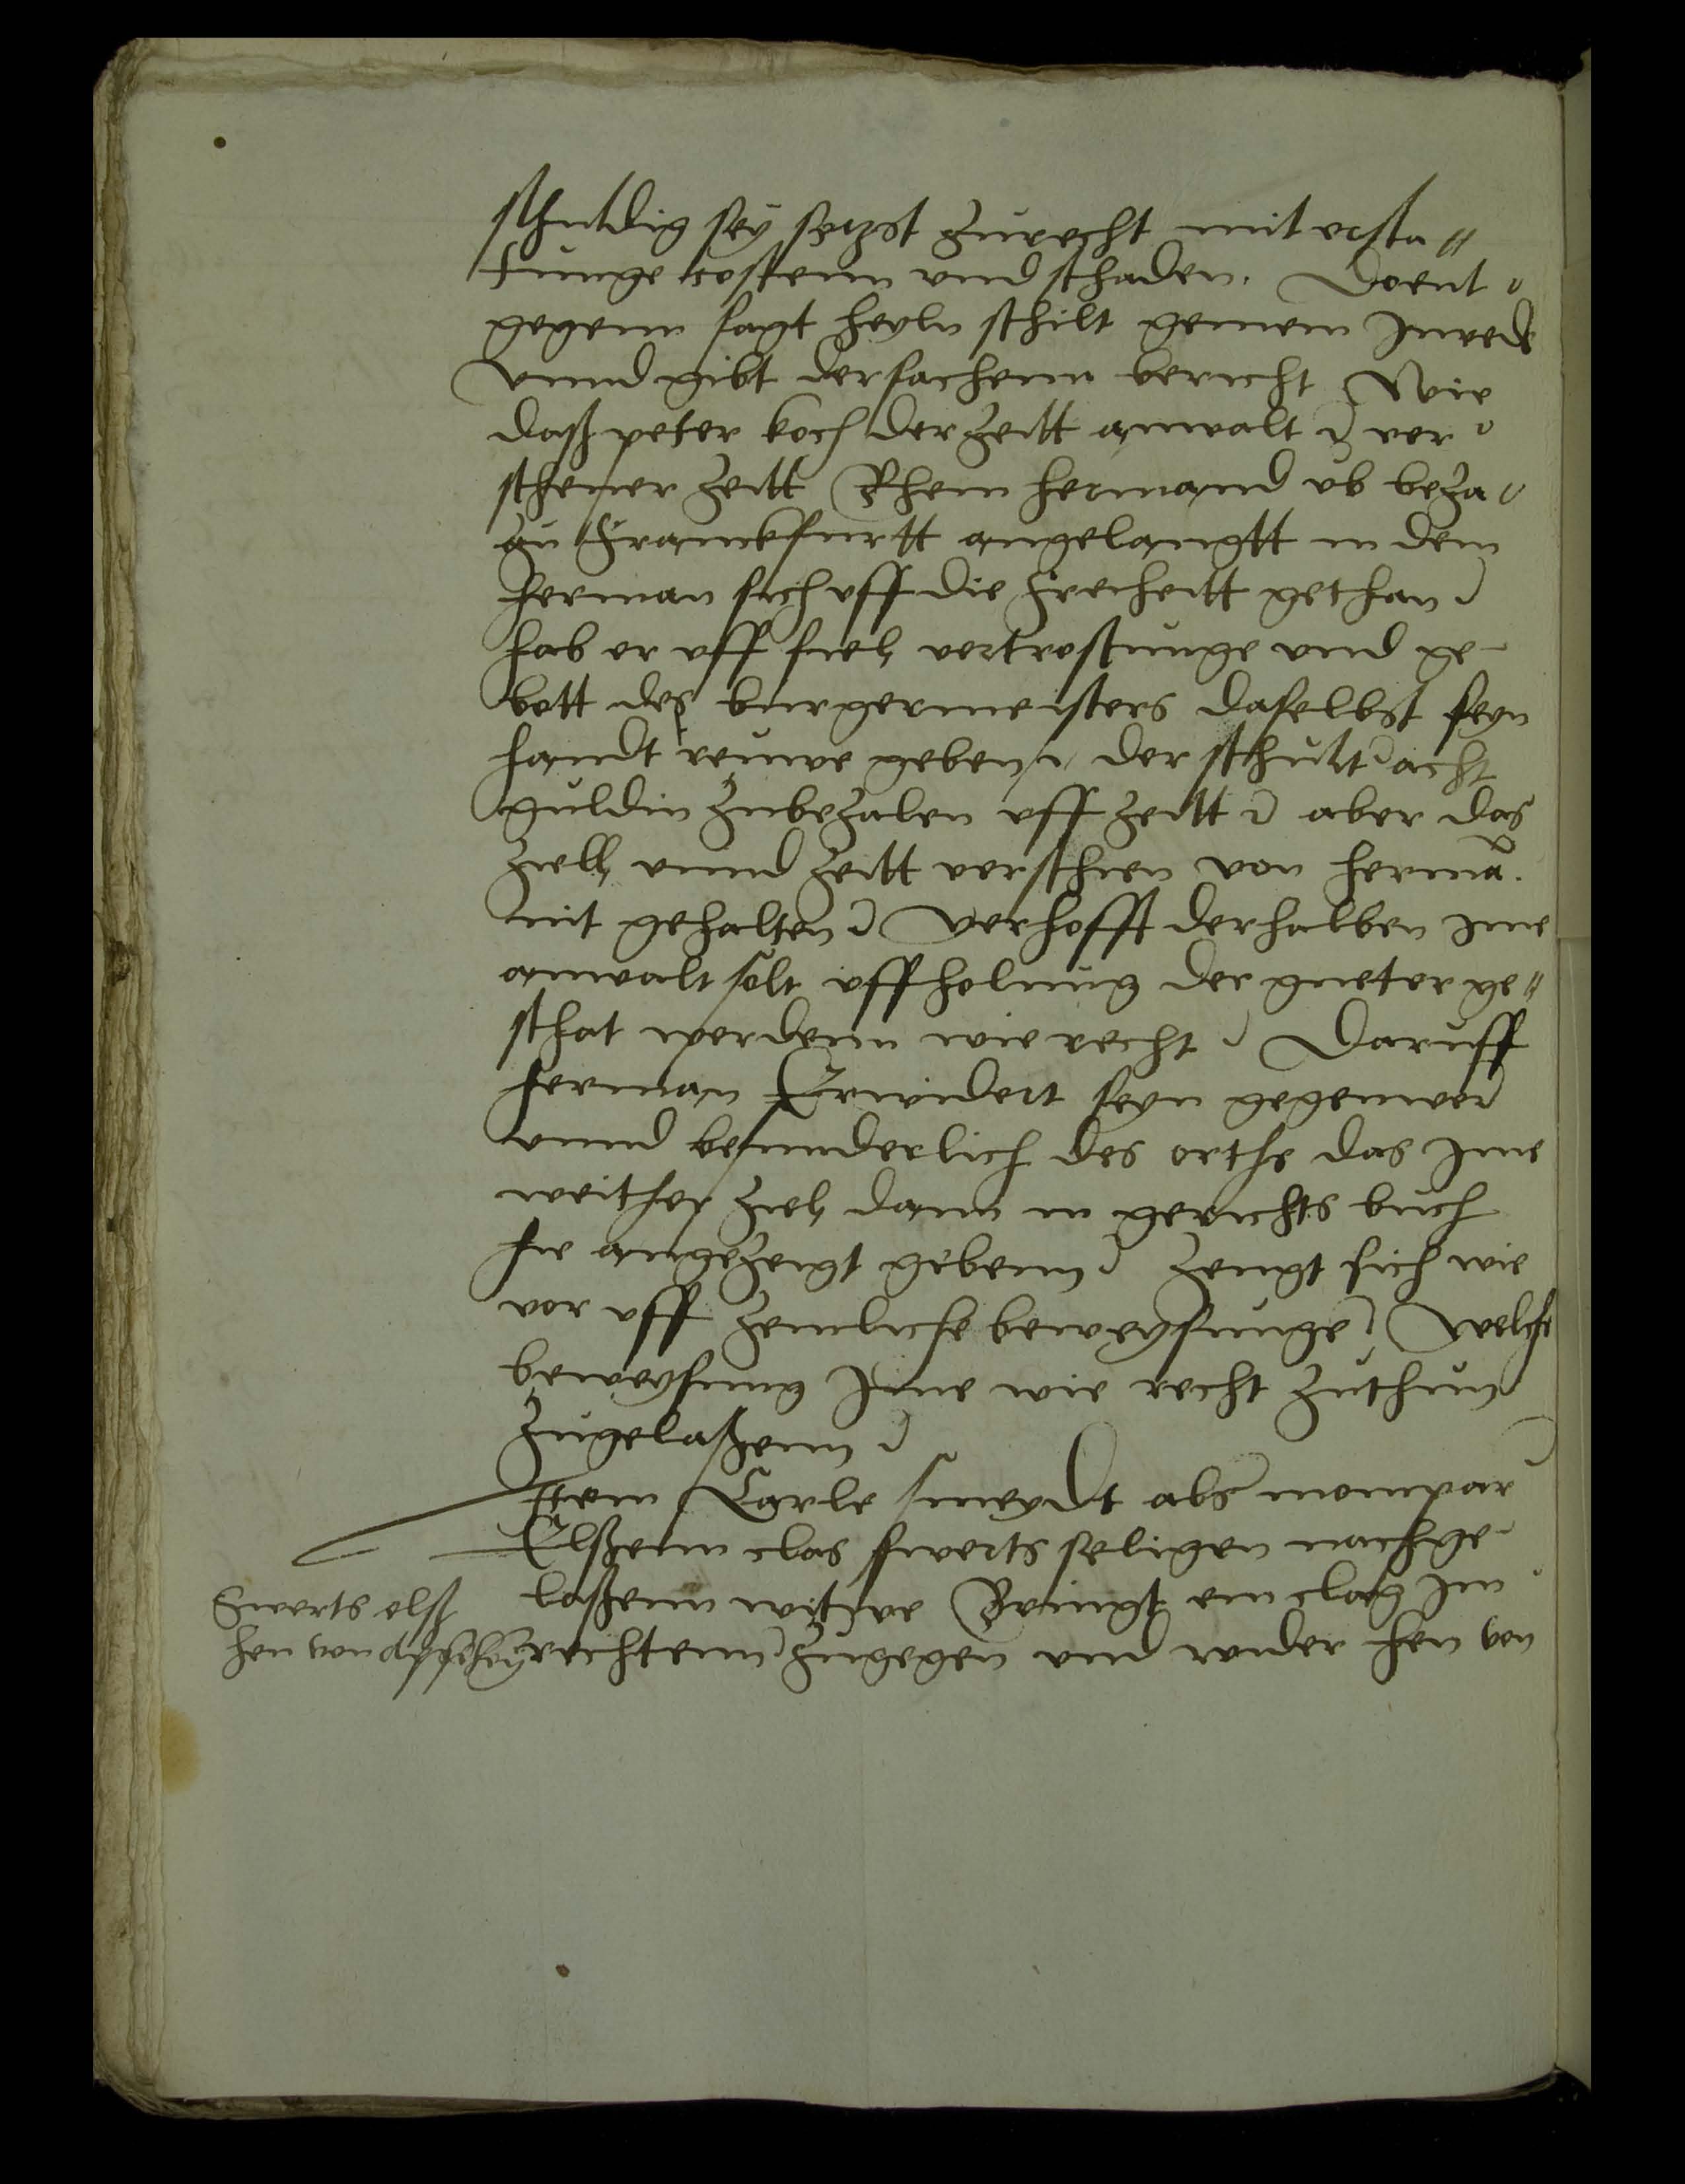 schuldig sey setzt zurecht mit erst"
tunge costenn und schaden. Doent"
gegenn sagt heyln schilt gemein Inred
unnd gibt der sachenn bericht Wie
daß peter koch der zeitt anwalt ver"
schener Zeitt Rhem hermand ub beza"
zu Franckfurtt angelangtt in dem
herman sich uff die Freiheitt gethan
hab er uff sich vertrostunge und ge-
bett des burgermeisters daselbst seyn
handt gebenn der schult acht
guldin zubezalen uff zeitt aber das
Ziell unnd Zeitt verschien von herma
nit gehalten Verhofft derhalben Ine
anwalt solt uffholung der gueter ge"
schat werdenn wie recht Daruff
herman Erwindert seyn gegenwer
unnd besunderlich des orths das Ime
weither ziel dann in gerichts buch
hie angezeigt gebenn Zeugt sich wie
vor uff zemliche beweysunge Welche
beweysung Ime wie recht zuthun
zugelaßenn
Item Carle schmydt als momper
Elßenn clas swerts seligen nachge-
laßenn witwe Bringt ein clag In
rechtenn zugegen und wider hen von
Swerts else
hen von